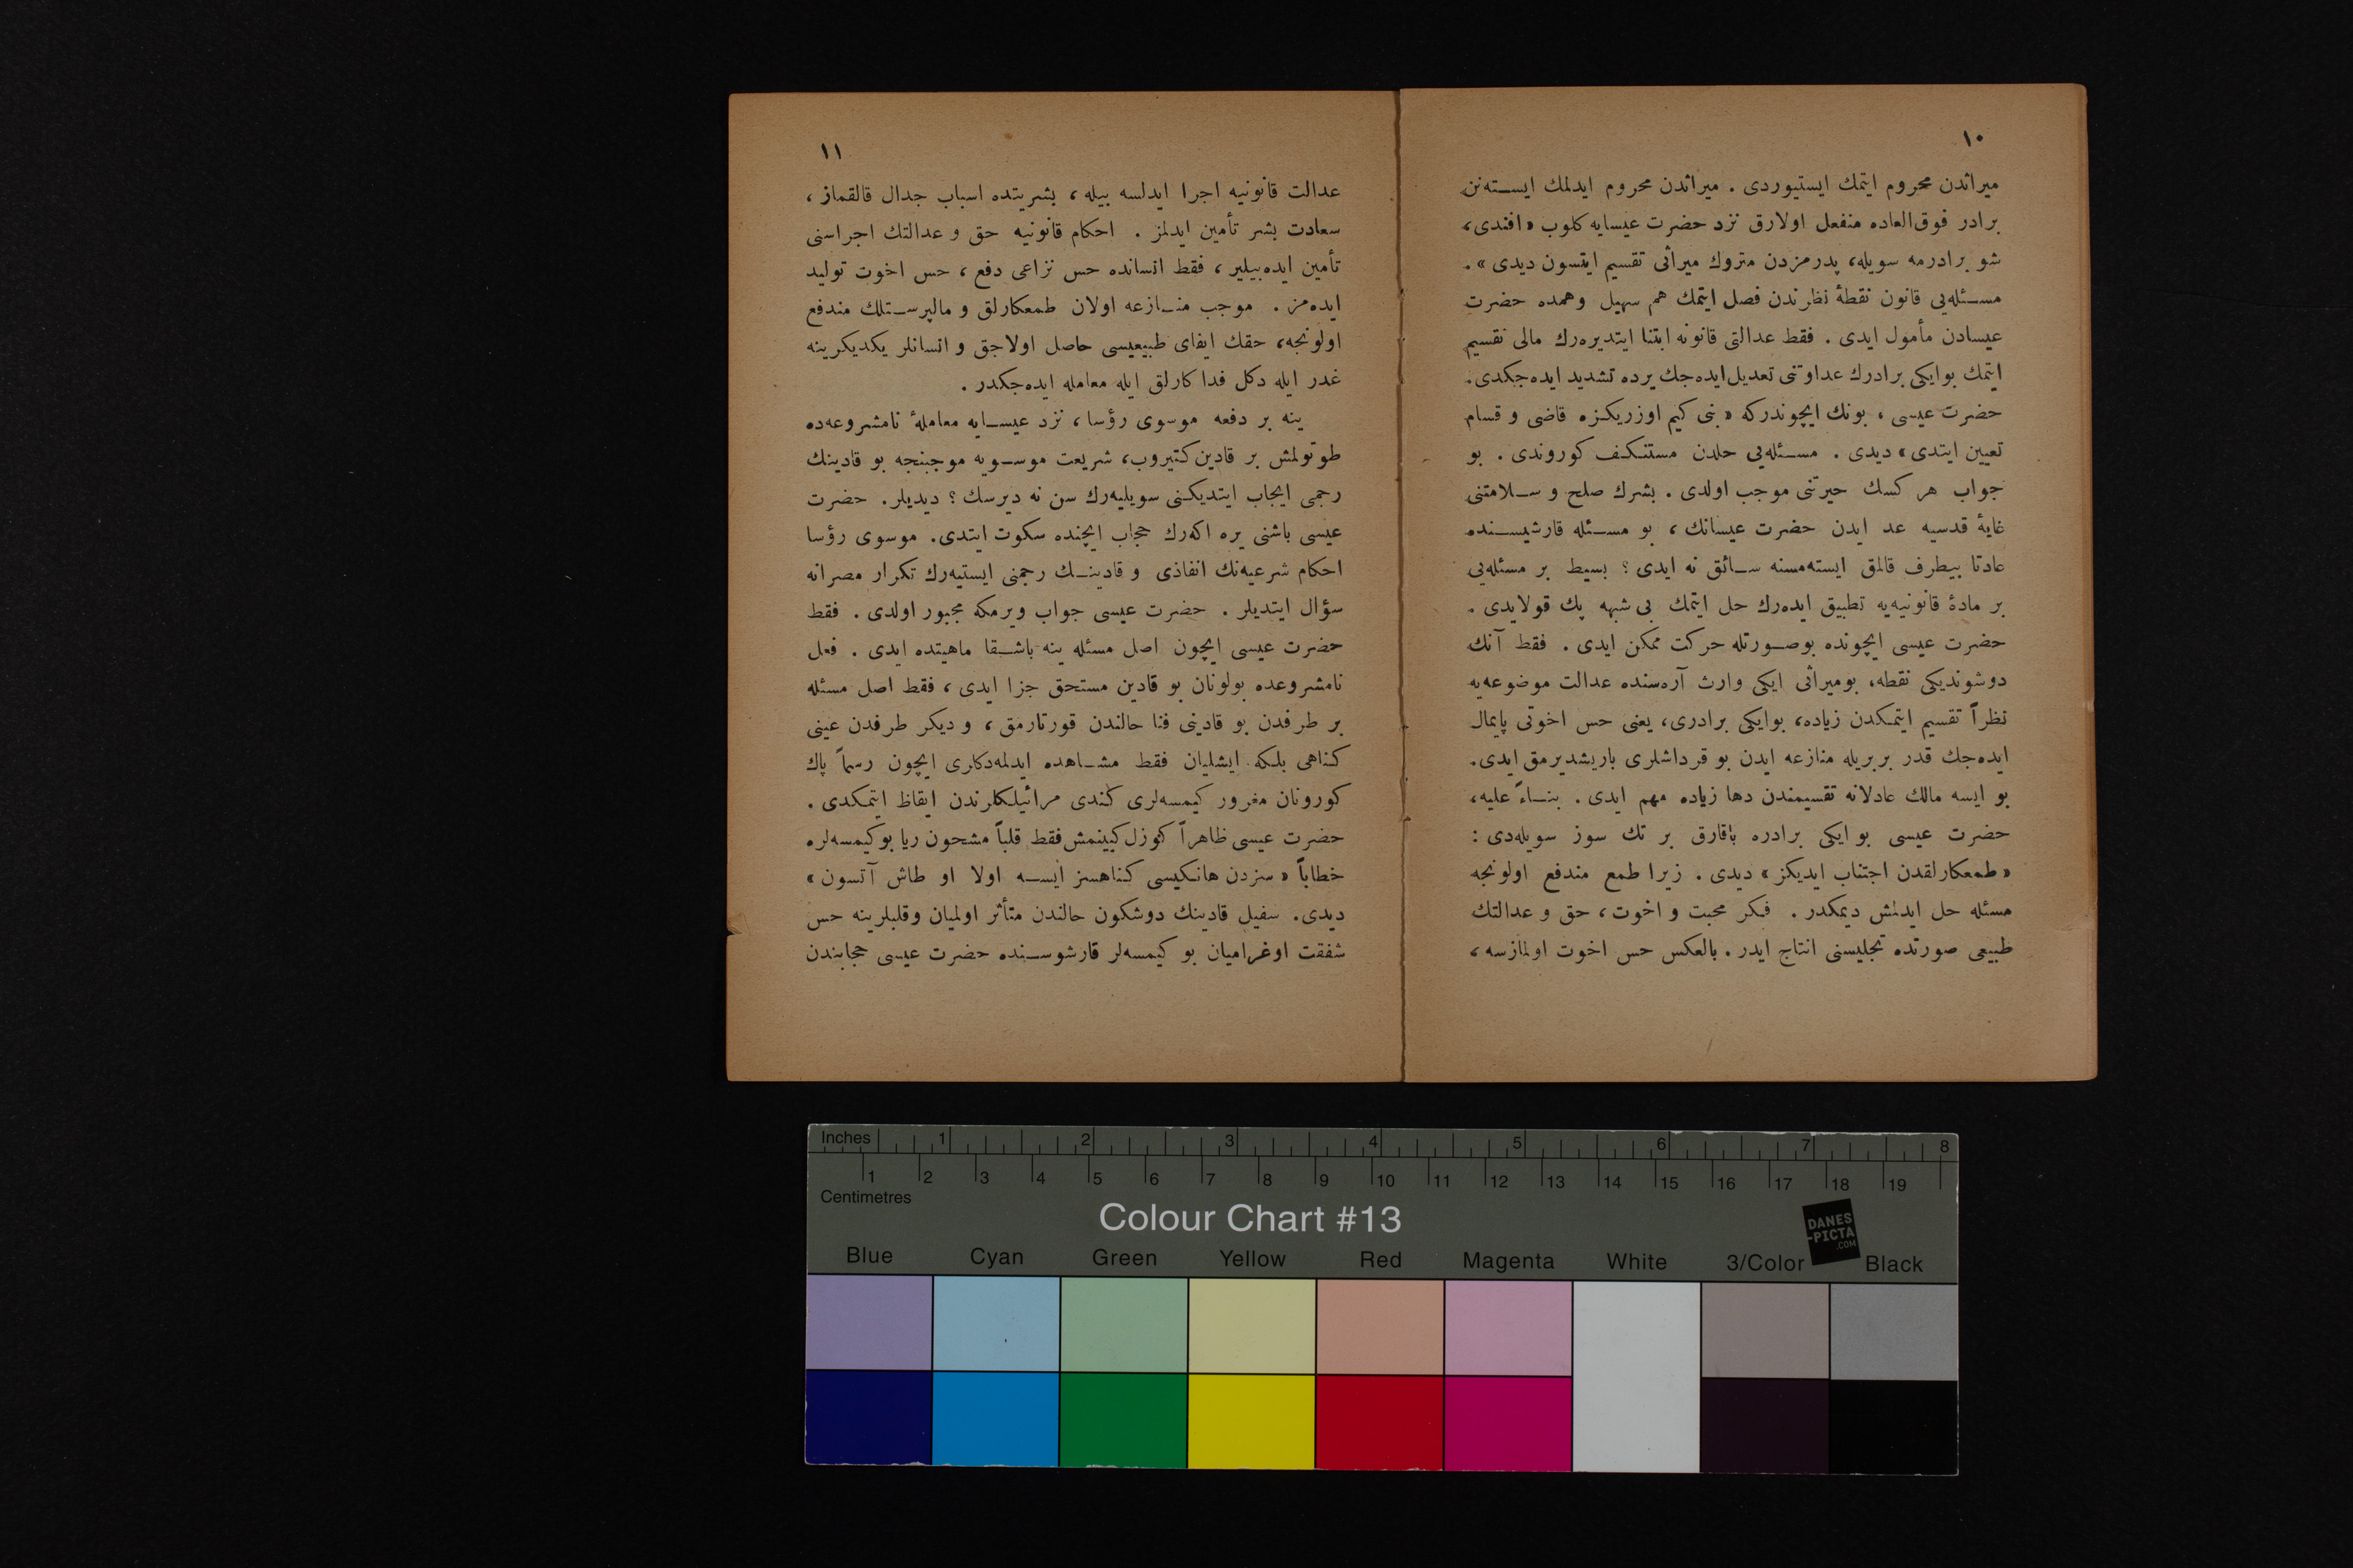 ١٠
میراثدن محروم ایتمك ایستیوردی . میراثدن محروم ایدلمك ایسته‌نن
برادر فوق‌العاده منفعل اولارق نزد حضرت عیسایه كلوب «افندی،
شو برادرمه سویله، پدرمزدن متروك میراثی تقسیم ایتسون دیدی» .
مسئله‌یی قانون نقطهٔ نظرندن فصل ایتمك هم سهیل وهمده حضرت
عیسادن مأمول ایدی . فقط عدالتی قانونه ابتنا ایتدیره‌رك مالی تقسیم
ایتمك بوایكی برادرك عداوتنی تعدیل ایده‌جك یرده تشدید ایده‌جكدی.
حضرت عیسی ، بونك ایچوندركه «بنی كیم اوزریكزه قاضی و قسام
تعیین ایتدی» دیدی . مسئله‌یی حلدن مستنكف كوروندی . بو
جواب هر كسك حیرتنی موجب اولدی . بشرك صلح و سلامتنی
غایهٔ قدسیه عد ایدن حضرت عیسانك ، بو مسئله قارشیسنده
عادتا بیطرف قالمق ایسته‌مسنه سائق نه ایدی ؟ بسیط بر مسئله‌یی
بر مادهٔ قانونیه‌یه تطبیق ایده‌رك حل ایتمك بی شبهه پك قولایدی .
حضرت عیسی ایچونده بوصورتله حركت ممكن ایدی . فقط آنك
دوشوندیكی نقطه، بومیراثی ایكی وارث آره‌سنده عدالت موضوعه‌یه
نظراً تقسیم ایتمكدن زیاده، بوایكی برادری، یعنی حس اخوتی پایمال
ایده‌جك قدر بربریله منازعه ایدن بو قرداشلری باریشدیرمق ایدی.
بو ایسه مالك عادلانه تقسیمندن دها زیاده مهم ایدی . بناءً علیه،
حضرت عیسی بو ایكی برادره باقارق بر تك سوز سویله‌دی :
«طمعكارلقدن اجتناب ایدیكز» دیدی . زیرا طمع مندفع اولونجه
مسئله حل ایدلمش دیمكدر . فكر محبت و اخوت ، حق و عدالتك
طبیعی صورتده تجلیسنی انتاج ایدر . بالعكس حس اخوت اولمازسه ،
١١
عدالت قانونیه اجرا ایدلسه بیله ، بشریتده اسباب جدال قالقماز ،
سعادت بشر تأمین ایدلمز . احكام قانونیه حق و عدالتك اجراسنی
تأمین ایده‌بیلیر ، فقط انسانده حس نزاعی دفع ، حس اخوت تولید
ایده‌مز . موجب منازعه اولان طمعكارلق و مالپرستلك مندفع
اولونجه، حقك ایفای طبیعیسی حاصل اولاجق و انسانلر یكدیكرینه
غدر ایله دكل فداكارلق ایله معامله ایده‌جكدر .
ینه بر دفعه موسوی رؤسا ، نزد عیسایه معاملهٔ نامشروعه‌ده
طوتولمش بر قادین كتیروب، شریعت موسویه موجبنجه بو قادینك
رجمی ایجاب ایتدیكنی سویلیه‌رك سن نه دیرسك ؟ دیدیلر. حضرت
عیسی باشنی یره اكه‌رك حجاب ایچنده سكوت ایتدی. موسوی رؤسا
احكام شرعیه‌نك انفاذی و قادینك رجمنی ایستیه‌رك تكرار مصرانه
سؤال ایتدیلر . حضرت عیسی جواب ویرمكه مجبور اولدی . فقط
حضرت عیسی ایچون اصل مسئله ینه باشقا ماهیتده ایدی . فعل
نامشروعده بولونان بو قادین مستحق جزا ایدی ، فقط اصل مسئله
بر طرفدن بو قادینی فنا حالندن قورتارمق ، و دیكر طرفدن عینی
كناهی بلكه ایشلیان فقط مشاهده ایدلمه‌دكلری ایچون رسماً پاك
كورونان مغرور كیمسه‌لری كندی مرائیلكلرندن ایقاظ ایتمكدی .
حضرت عیسی ظاهراً كوزل كیینمش فقط قلباً مشحون ریا بو كیمسه‌لره
خطاباً «سزدن هانكیسی كناهسز ایسه اولا او طاش آتسون»
دیدی. سفیل قادینك دوشكون حالندن متأثر اولمیان وقلبلرینه حس
شفقت اوغرامیان بو كیمسه‌لر قارشوسنده حضرت عیسی حجابندن
Inches 1 2 3 4 5 6 7 8
1 2 3 4 5 6 7 8 9 10 11 12 13 14 15 16 17 18 19
Centimetres
Colour Chart #13
DANES
-PICTA
.COM
Blue Cyan Green Yellow Red Magenta White 3/Color Black